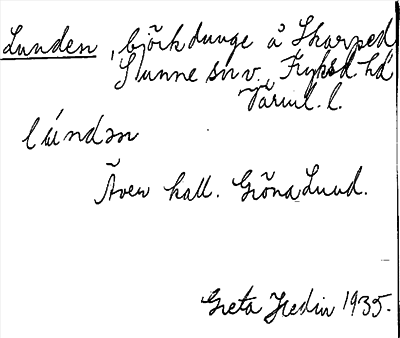 Lunden, björkdunge å Skarped
Sunne snv. Fryksd. hd
Värml. l.
lúndən
Även kall. Gröna Lund.
Greta Hedin 1935.